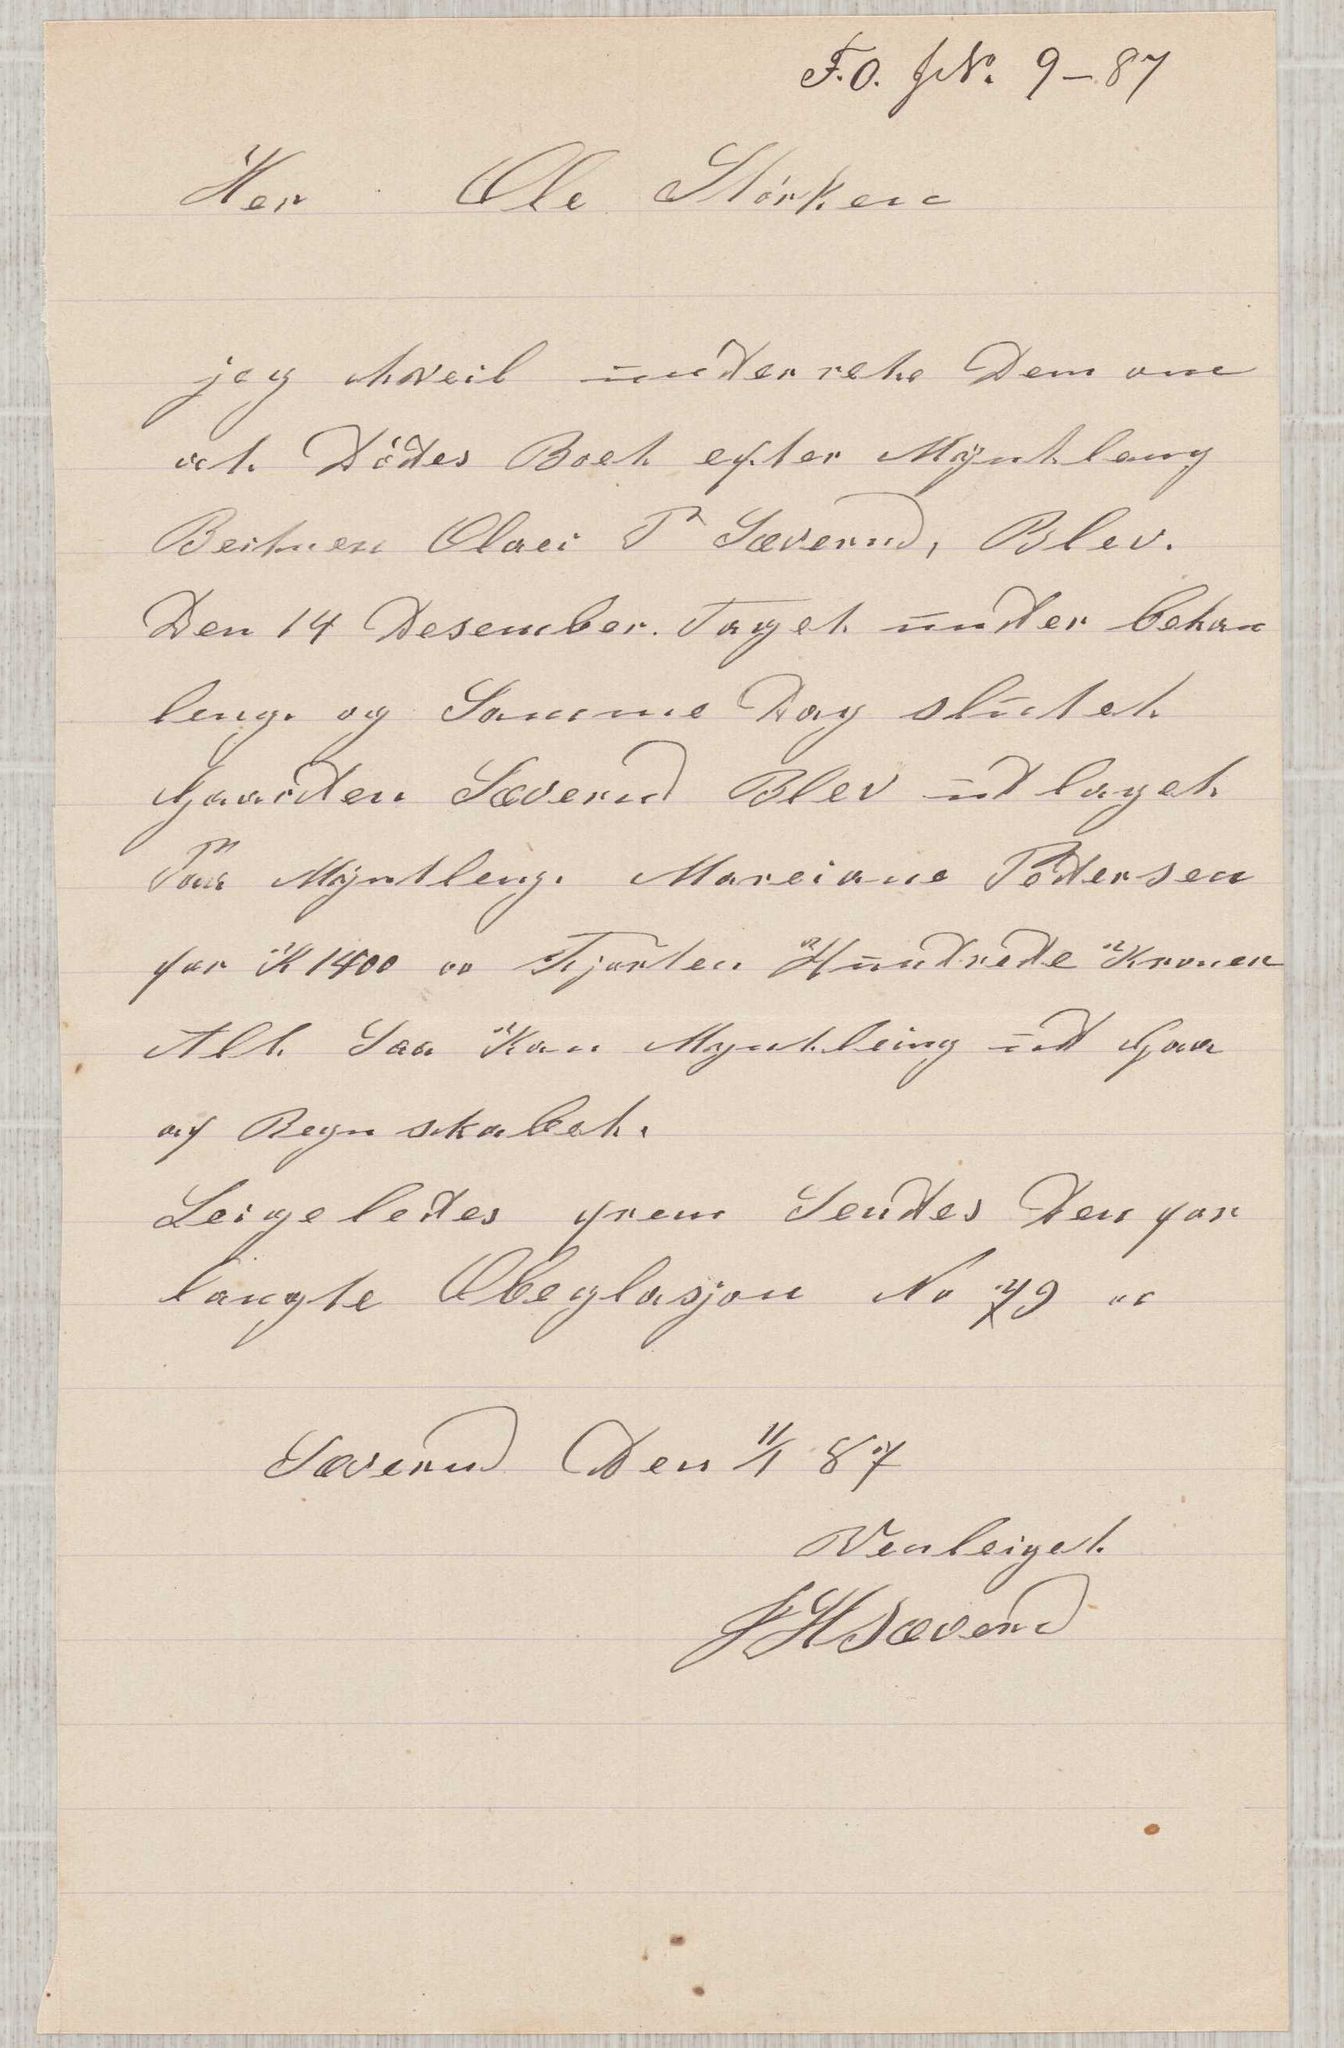 F.O. JNo. 9-87
Her Ole Störksen
jeg hveil underrete Dem om
at Dödes Boet efter Mÿntleng
Beitnen Olaei P Sæverud, Blev.
Den 14 Desember. Taget under behan
leng. og Samme Dag slutet
Gaarden Sæverud Blev udlaget
Paa Mÿntleng. Mareiane Pedersen
for K 1400 " Fjorten Hundrede Kroner
Alt Saa Kan Myntleing ud Gaa
af Regnskabet.
Leigeledes frem Sendes Den for
langte Obeglasjon No 79 "
Sæverud Den 11/1 87
Venleigst
H Sæverud